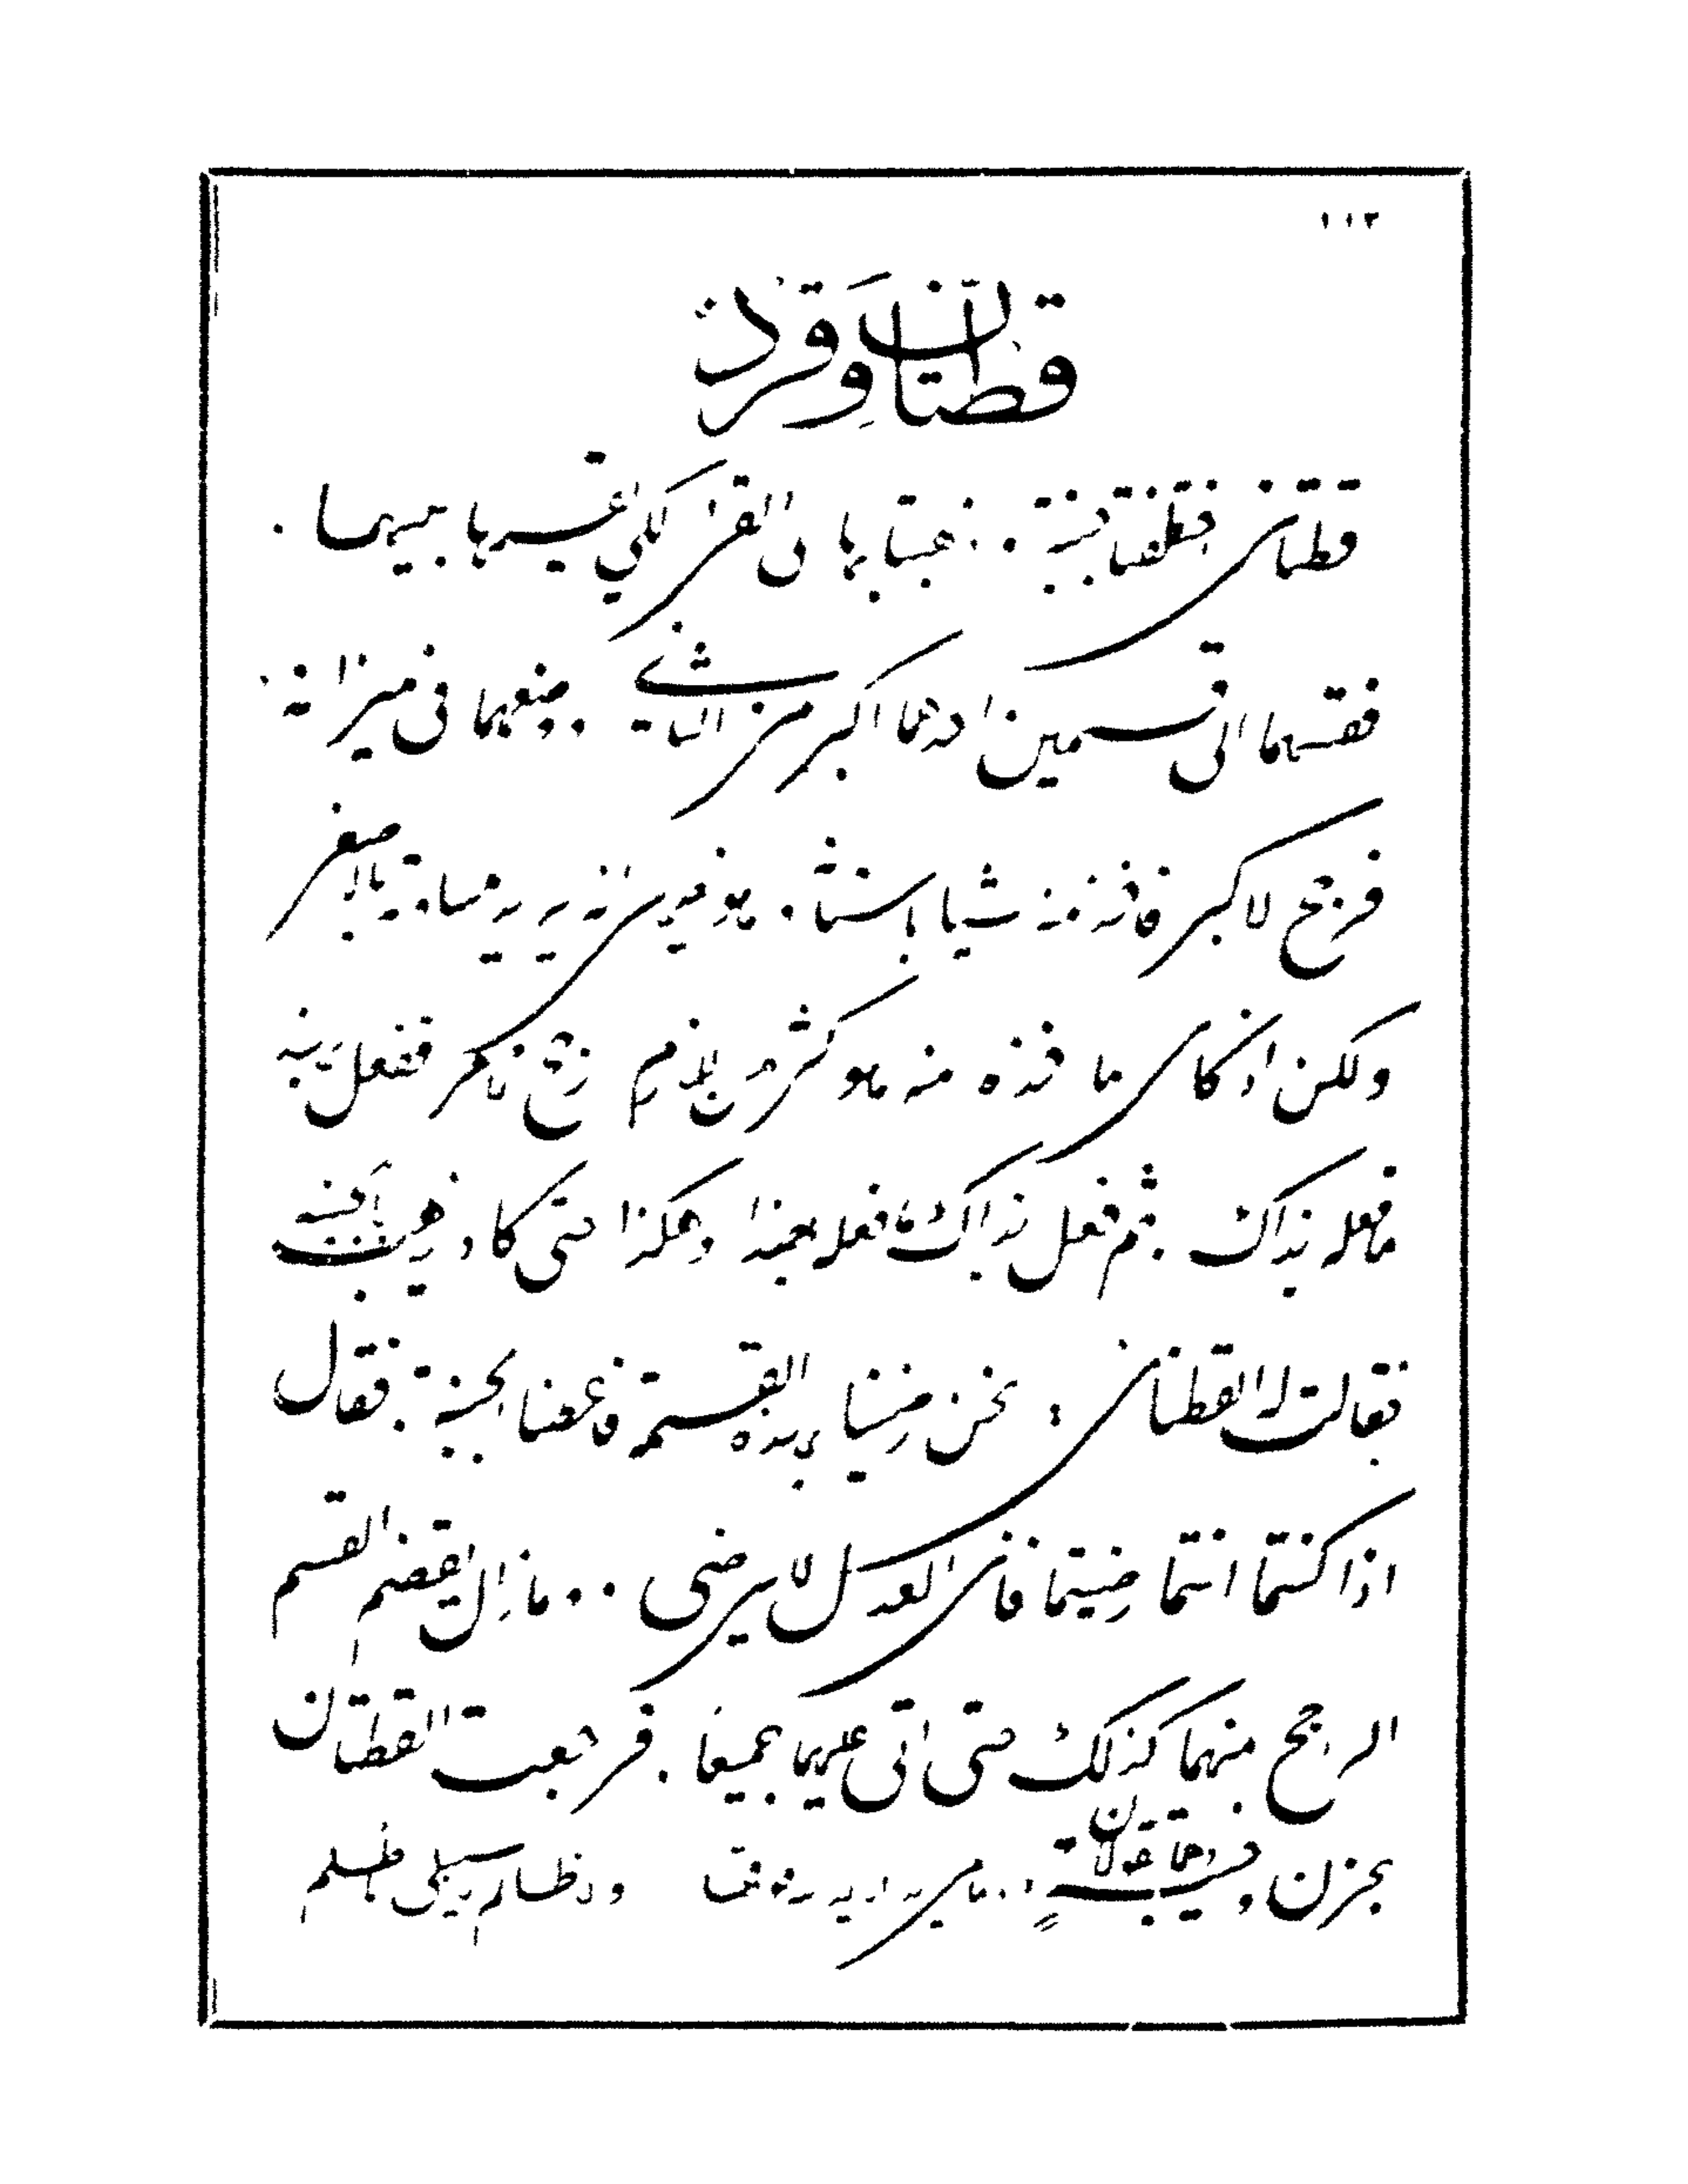 ١١٢
قطتان وقرد
قطتان اختطفتا جبنة . وذهبتا بها الى القرد لكي يقسمها بينهما .
فقسمها الى قسمين احدهما اكبر من الثاني . ووضعهما في ميزانه .
فرجح الاكبر فاخذ منه شيئا باسنانه . وهو يريد مساواته بالاصغر
ولكن اذ كان ما اخذه منه هو اكثر من اللازم رجح الاصغر ففعل بهذا
ما فعله بذاك . ثم فعل بذاك ما فعله بهذا وهكذا حتى كاد يذهب بالجبنة
فقالت له القطتان : نحن رضينا بهذه القسمة فاعطنا الجبنة . فقال
اذا كنتما انتما رضيتما فان العدل لا يرضى . . وما زال يقضم القسم
الراجح منهما كذلك حتى اتى عليهما جميعا . فرجعت القطتان
بحزن وخيبة وهما تقولان : وما من يد الا يد الله فوقها ولا ظالم الا سيبلى باظلم